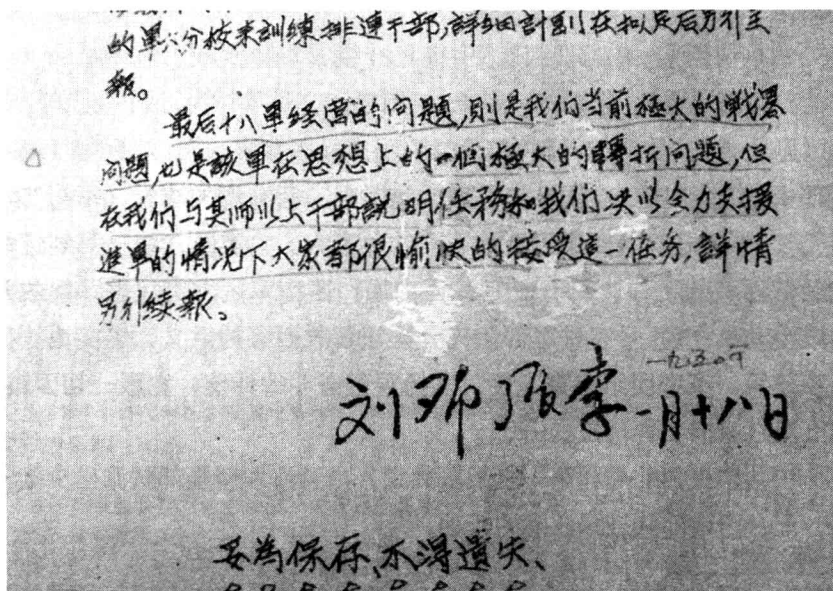 的軍分校来訓練排連干部,詳細計劃在拟定后另行呈
報。
最后十八軍経营的问題,則是我们当前極大的戦畧
问題,也是該軍在思想上的一個極大的轉折问題,但
在我们与其师以上干部説明任務和我们决以全力支援
進軍的情况下大家都很愉快的接受這一任务,詳情
另行续報。
一九五〇年
刘邓张李一月十八日
妥為保存、不得遺失、